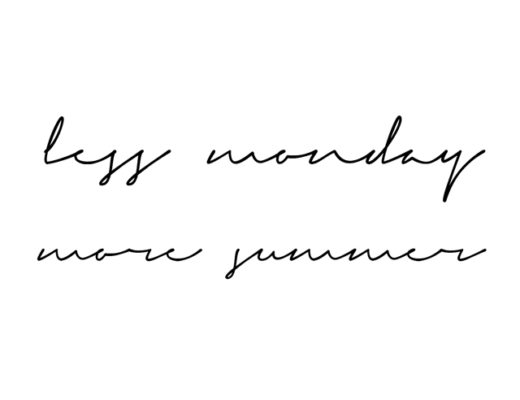 less monday
more summer